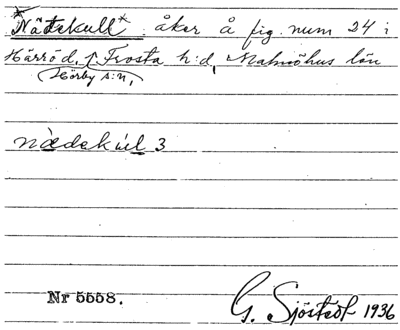 *Nätekull* åker å fig. num 24 i
Härröd, Frosta h:d, Malmöhus län
Hörby s:n,
nàdekúl 3
Nr 5558. G. Sjöstedt 1936